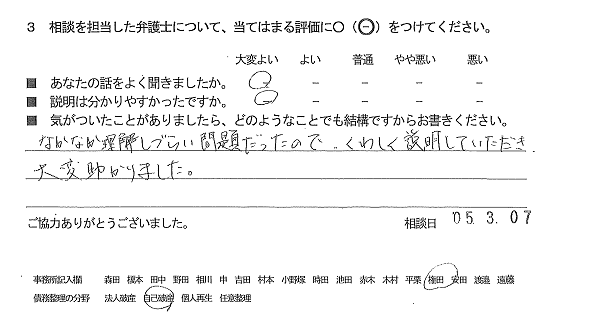 3 相談を担当した弁護士について、当てはまる評価に○（⊖）をつけてください。
大変よい よい 普通 やや悪い 悪い
■ あなたの話をよく聞きましたか。 － － － － －
■ 説明は分かりやすかったですか。 － － － － －
■ 気がついたことがありましたら、どのようなことでも結構ですからお書きください。
なかなか理解しづらい問題だったので、くわしく説明していただき
大変助かりました。
ご協力ありがとうございました。 相談日 '05.3.07
事務所記入欄 森田 榎本 田中 野田 相川 申 吉田 村本 小野塚 時田 池田 赤木 木村 平栗 権田 安田 渡邉 遠藤
債務整理の分野 法人破産 自己破産 個人再生 任意整理